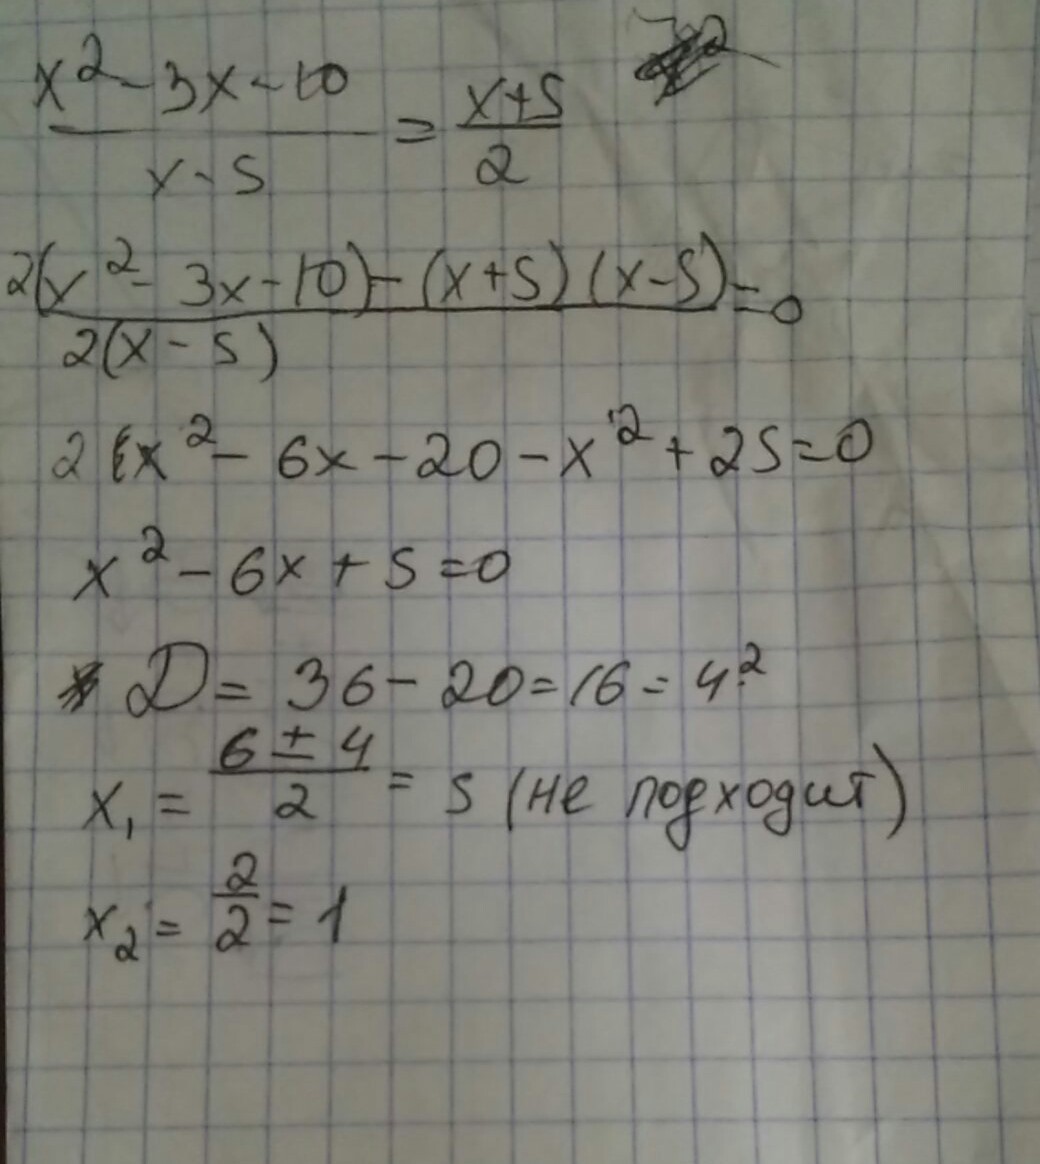 x² - 3x - 10 / x - 5 = x + 5 / 2
2(x² - 3x - 10) - (x + 5)(x - 5) / 2(x - 5) = 0
2x² - 6x - 20 - x² + 25 = 0
x² - 6x + 5 = 0
D = 36 - 20 = 16 = 4²
x₁ = 6 ± 4 / 2 = 5 (не подходит)
x₂ = 2 / 2 = 1